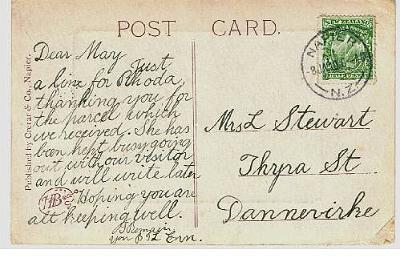 POST CARD.
Dear May
Just
a line for Rhoda
thanking you for
the parcel which
we received. She has
been kept busy going
out with our visitor
and will write later
Hoping you are
all keeping well.
I Remain
Mrs L Stewart
Thyra St
Dannevirke
NEW ZEALAND
HALF PENNY
NAPIER
N.Z
Published by Cerrar & Co., Napier.
HB